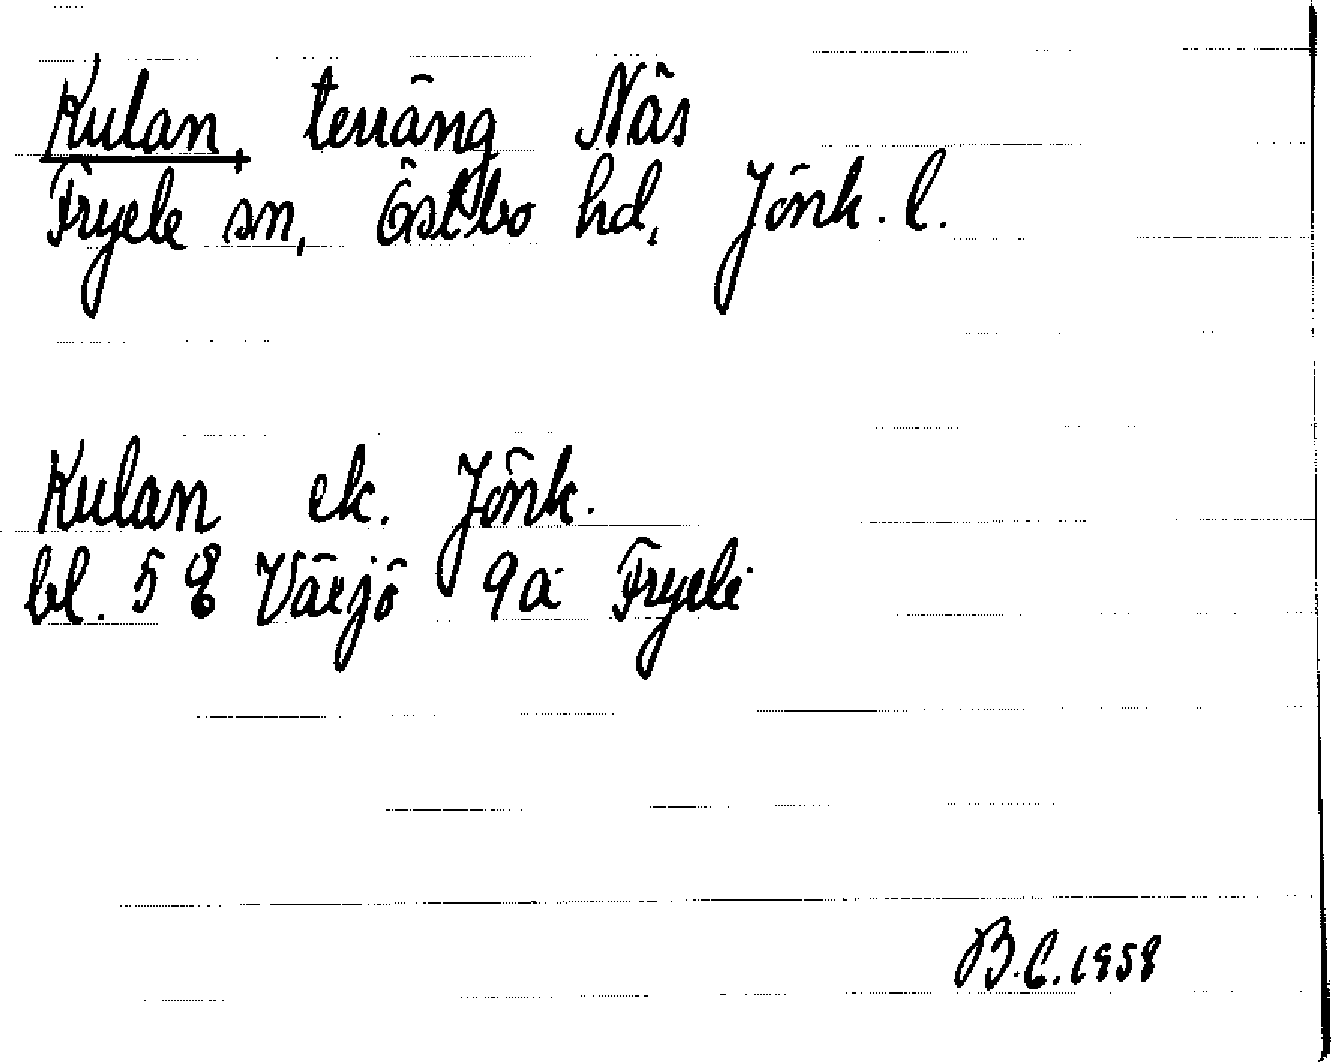 Kulan, terräng Näs
Fryele sn, Östbo hd, Jönk. l.
Kulan ek. Jönk.
bl. 5 8 Värjö 9a Fryele
B.C. 1958